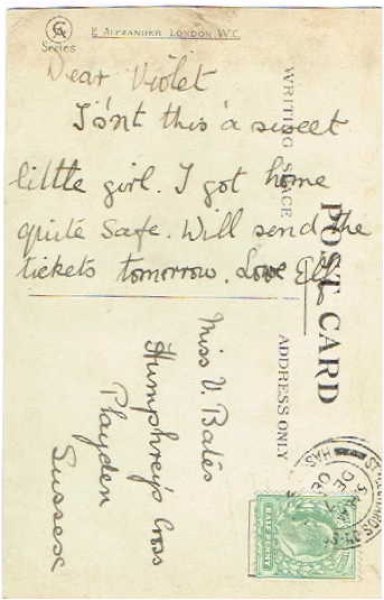 GA
Series
E. ALEXANDER LONDON. W.C.
Dear Violet
Is'nt this a sweet
little girl. I got home
quite safe. Will send the
tickets tomorrow. Love
WRITING SPACE
POST CARD
ADDRESS ONLY
Miss V. Bates
Humphrey's Cross
Playden
Sussex
HALF PENNY